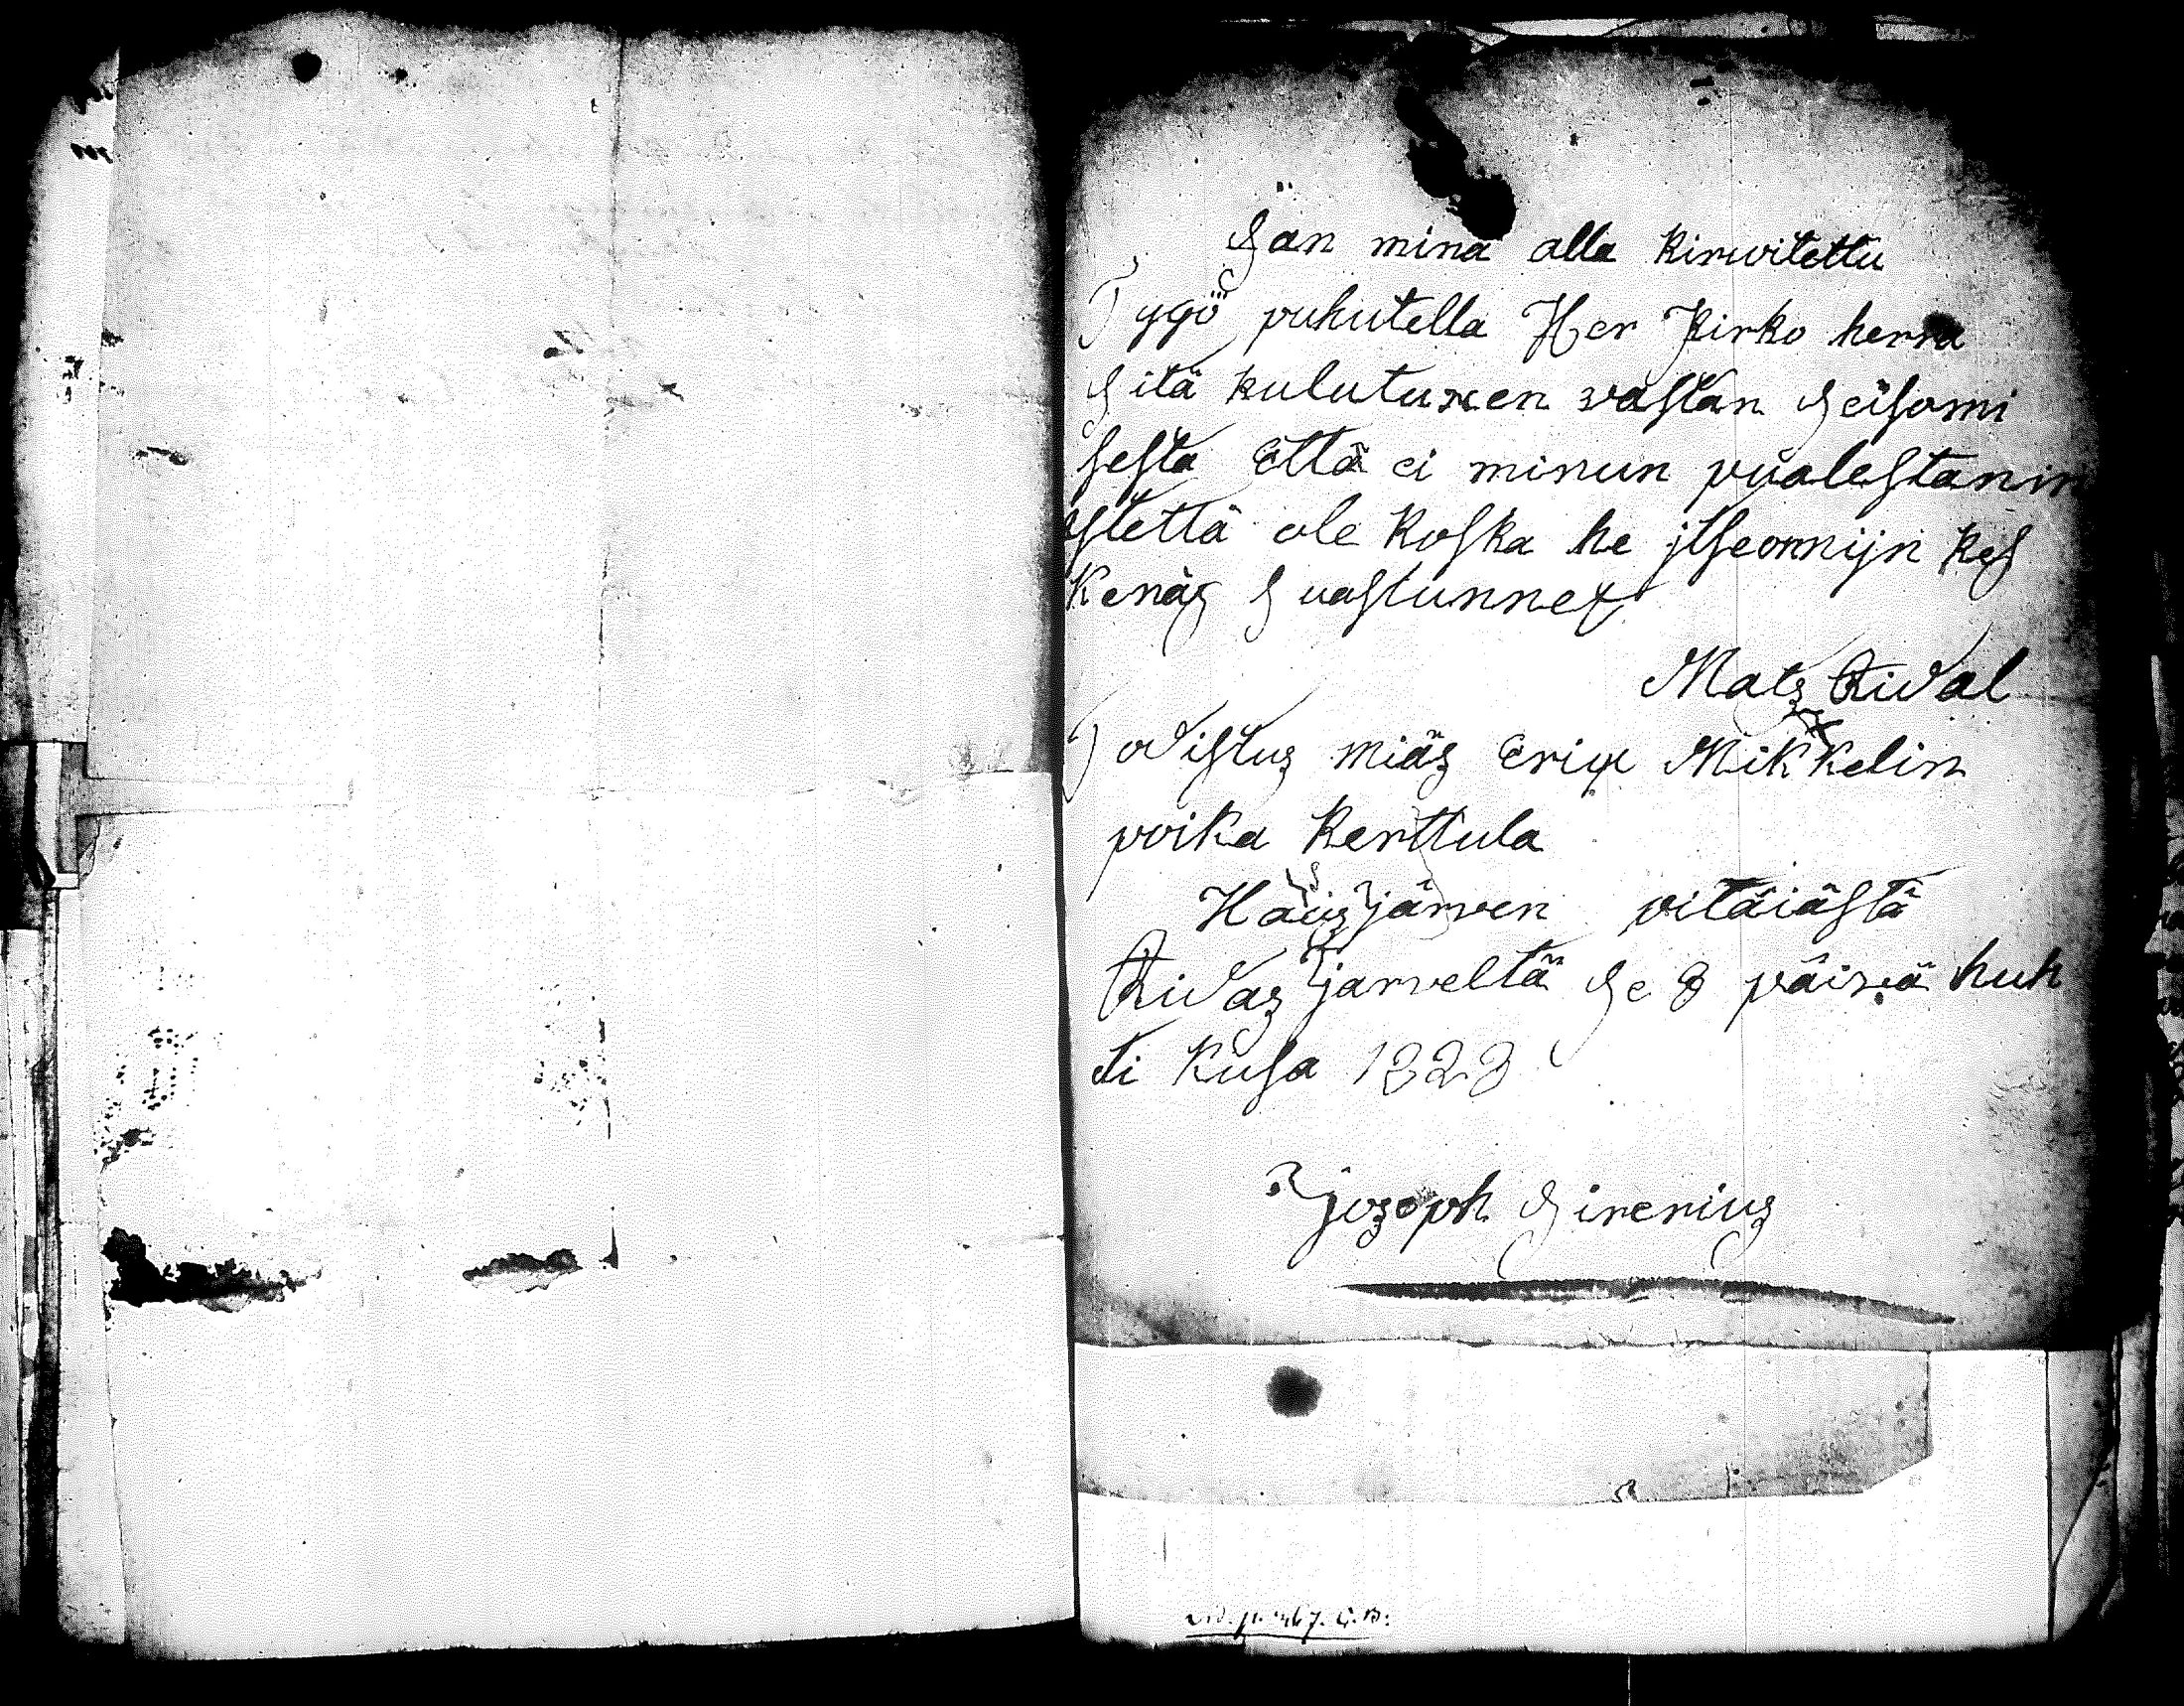 San minä alla Kirwitettu
Tygö puhutella Her Kirko herra
Sitä kulutuxen wastan Seisomi
sesta Että ei minun puolestanin
estettä ole Koska he jtseonnijn kes
Kenäs Suastunnex
Mats Ridal
Todistus miäs Eriχ Mikkelin
poika Kerttula
Haus järwen pitäiästä
Ridas järveltä Se 8 päivä huh
ti Kusa 1828
Joseph Sirenius